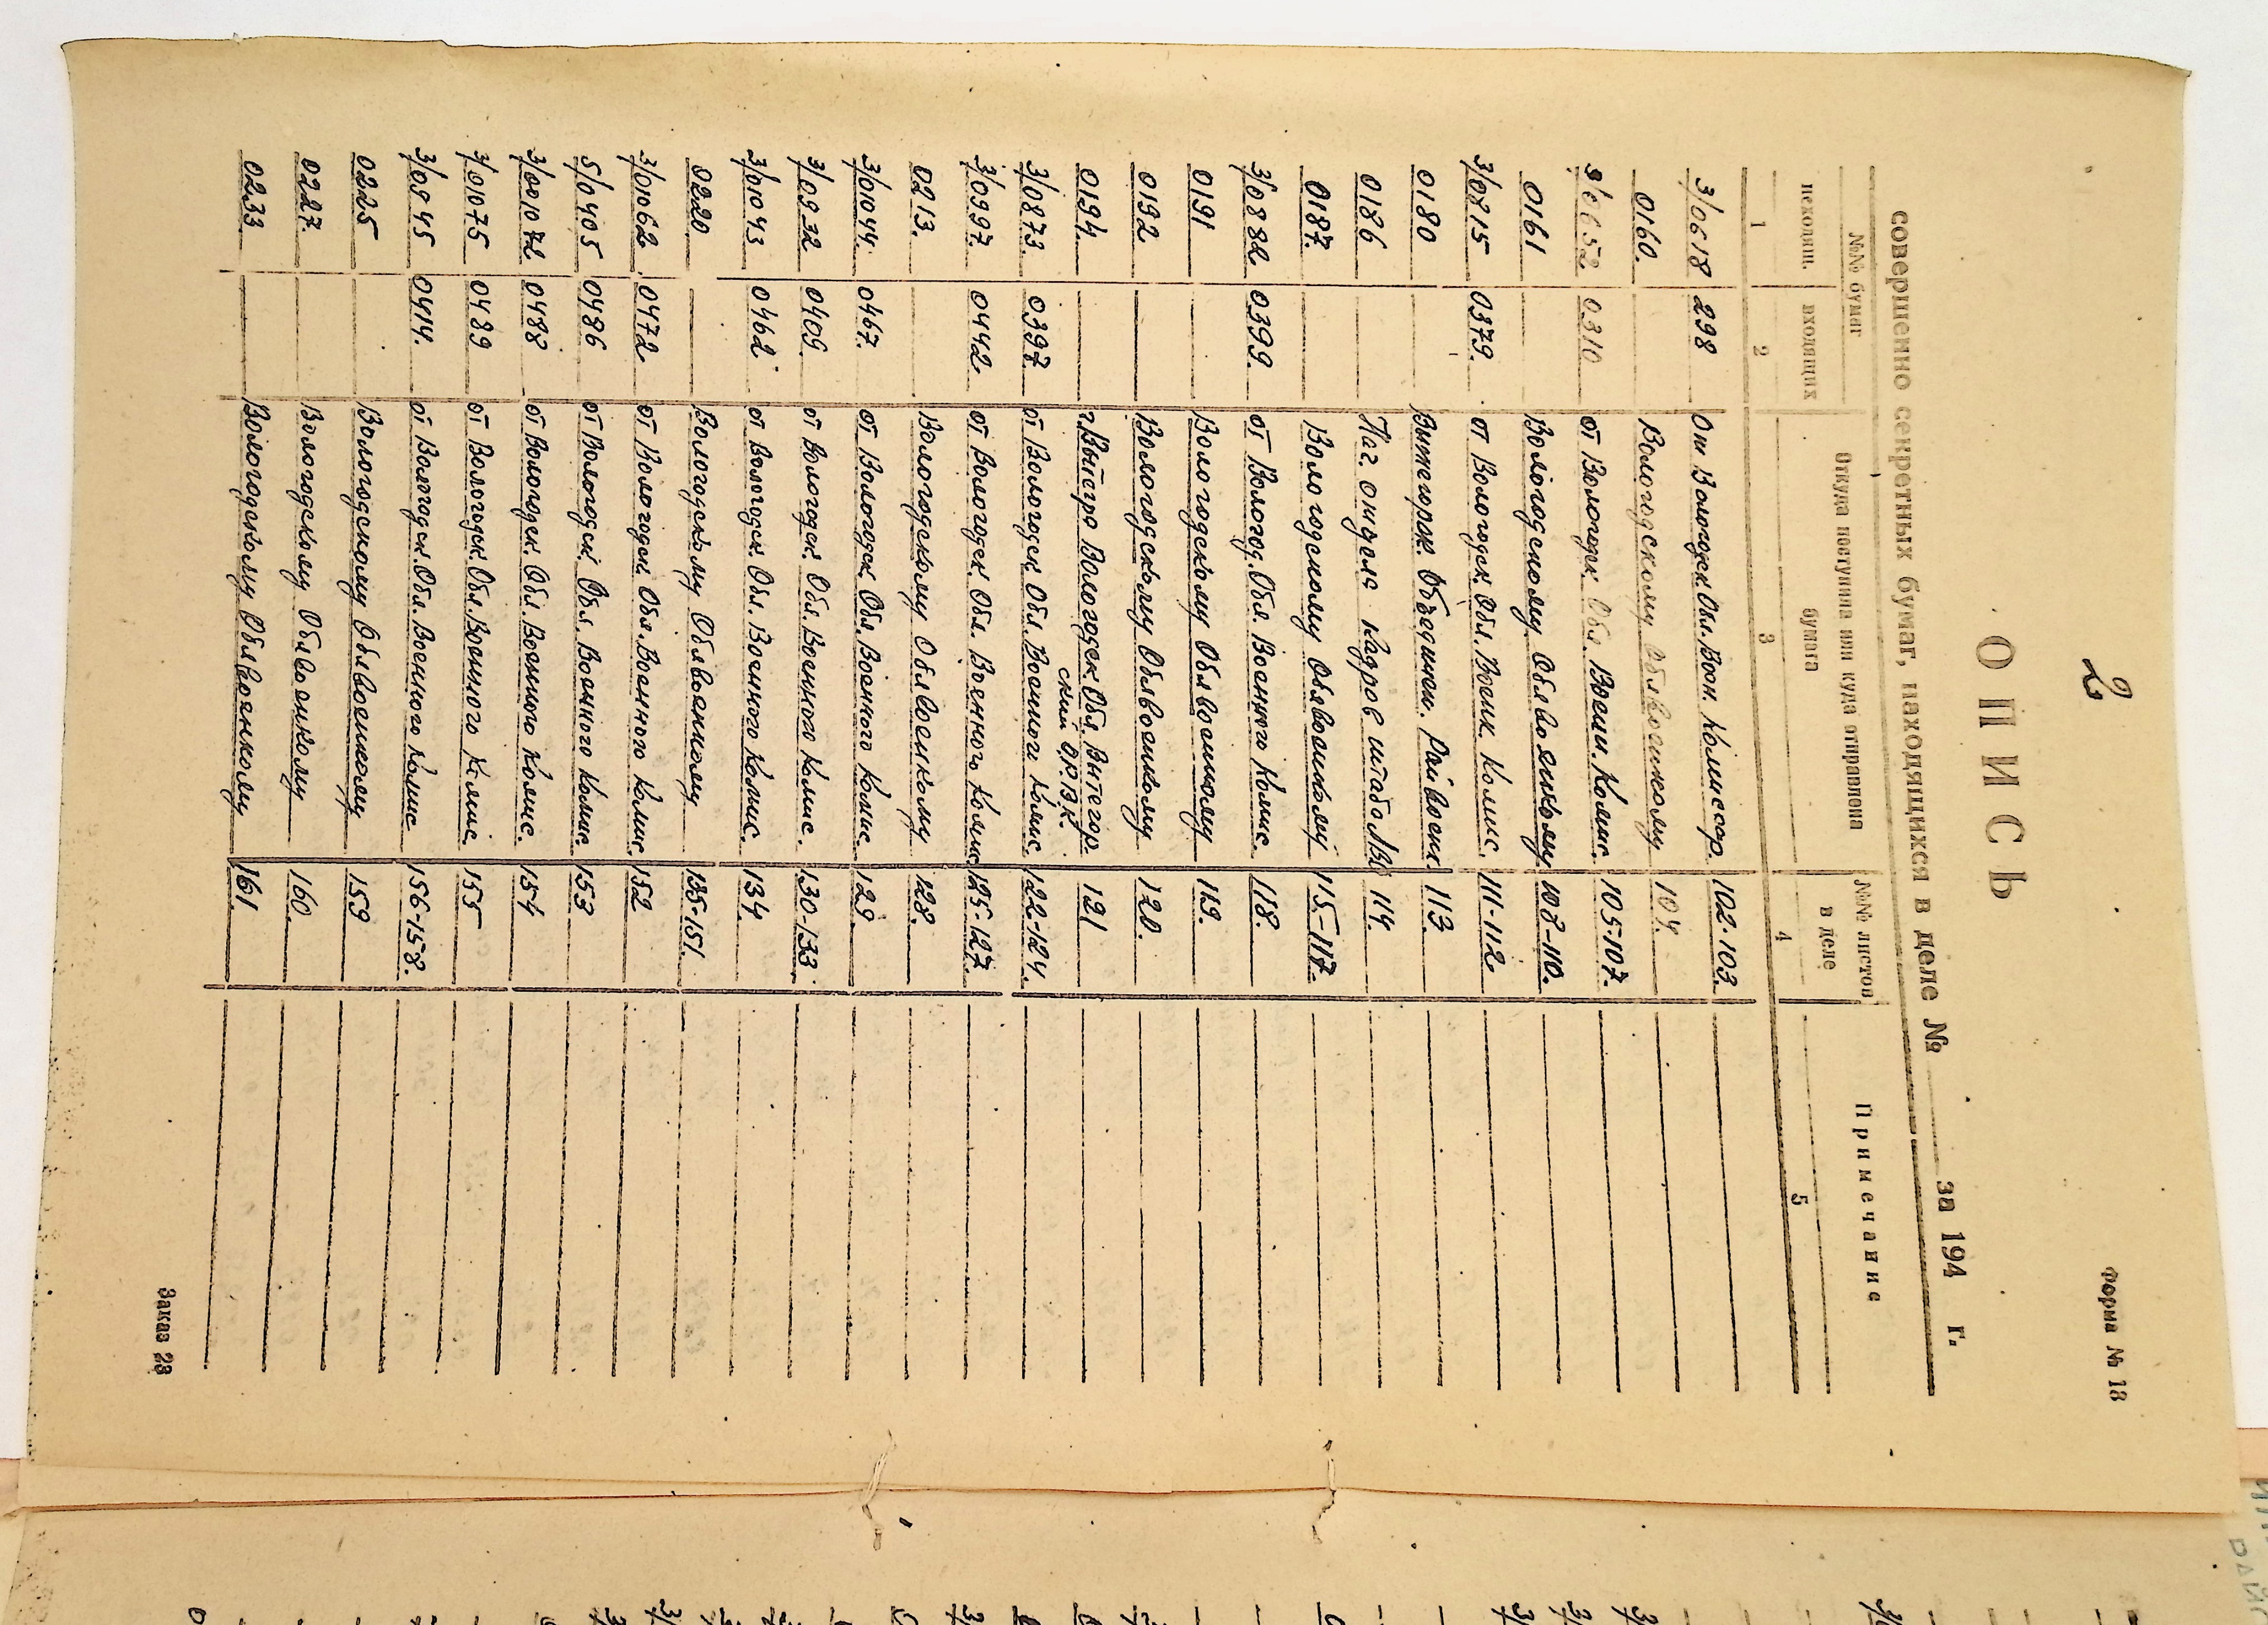 2
Форма № 18
ОПИСЬ
совершенно секретных бумаг, находящихся в деле № за 194 г.
№№ бумаг
исходящ. входящих
Откуда поступила или куда отправлена
бумага
№№ листов
в деле
Примечание
1 2 3 4 5
3/0618 298 От Вологодск Обл. Воен. Комиссар. 102-103.
0160. Вологодскому Облвоенкому 104.
3/0652. 0310 от Вологодск. Обл. Военн. Комис. 105-107.
0161 Вологодскому Облвоенкому 108-110.
3/0815 0379. от Вологодск. Обл. Военк. Комис. 111-112
0180 Объединен. Райвоен. 113.
0186 Нач. отдела кадров штаба 114.
0187. Вологодскому Облвоенкому 115-117.
3/0882 0399. от Вологод. Обл. Военного Комис. 118.
0191 Вологодскому Облвоенкому 119.
0192 Вологодскому Облвоенкому 120.
0194 г. Вытегра Вологодск. Обл. Вытегор-
ский О.Р.В.К. 121
3/0873. 0397 от Вологодск Обл. Военного Комис 122-124.
3/0997. 0442 от Вологодск. Обл. Военного Комис. 125-127.
0213. Вологодскому Облвоенкому 128.
3/01044. 0467. от Вологодск Обл. Военного Комис 129.
3/0932 0409. от Вологодск. Обл. Военного Комис. 130-133.
3/01043 0462. от Вологодск. Обл. Военного Комис. 134.
0220 Вологодскому Облвоенкому 135-151.
3/01062. 0472. от Вологодск Обл. Военного Комис 152
5/0405 0486 от Вологодск Обл. Военного Комис. 153
3/001072 0488 от Вологодск. Обл. Военного Комис. 154
3/01075 0489 от Вологодск. Обл. Военного Комис 155
3/0945 0414. от Вологодск. Обл. Военного Комис 156-158.
0225 Вологодскому Облвоенкому 159
0227. Вологодскому Облвоенкому 160.
0233 Вологодскому Облвоенкому 161.
Заказ 23